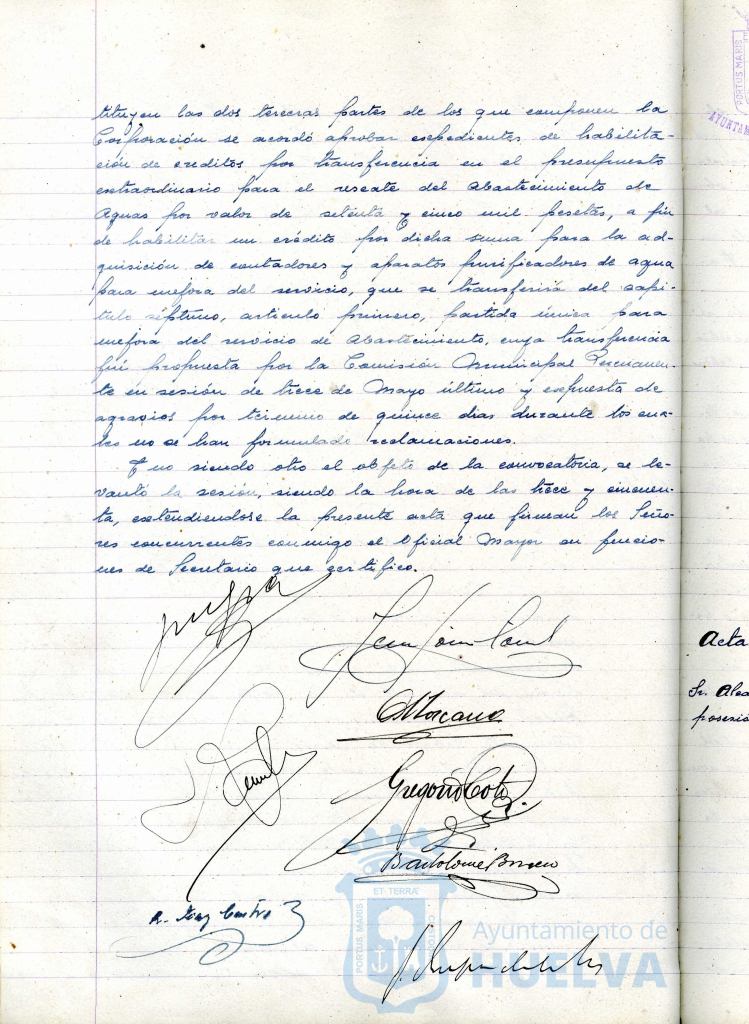 tituyen las dos terceras partes de los que componen la
Corporación se acordó aprobar expedientes de habilita-
ción de creditos por transferencia en el presupuesto
extraordinario para el rescate del Abastecimiento de
Aguas por valor de setenta y cinco mil pesetas, a fin
de habilitar un crédito por dicha suma para la ad-
quisición de contadores y aparatos purificadores de agua
para mejora del servicio, que se transferirá del capi-
tulo séptimo, articulo primero, partida única para
mejora del servicio de Abastecimiento, cuya transferencia
fué propuesta por la Comisión Municipal Permanen-
te en sesión de trece de Mayo último y expuesta de
agravios por término de quince dias durante los cua-
les no se han formulado reclamaciones.
Y no siendo otro el objeto de la convocatoria, se le-
vantó la sesión, siendo la hora de las trece y cincuen-
ta, extendiendose la presente acta que firman los Seño-
res concurrentes conmigo el Oficial Mayor en funcio-
nes de Secretario que certifico.
Gregorio Coto
Bartolomé
Castro
PORTUS MARIS
ET TERRÆ
CUSTODIA
Ayuntamiento de
HUELVA
PORTUS MARIS
AYUNTAM
Acta
Sr. Alca
posesió